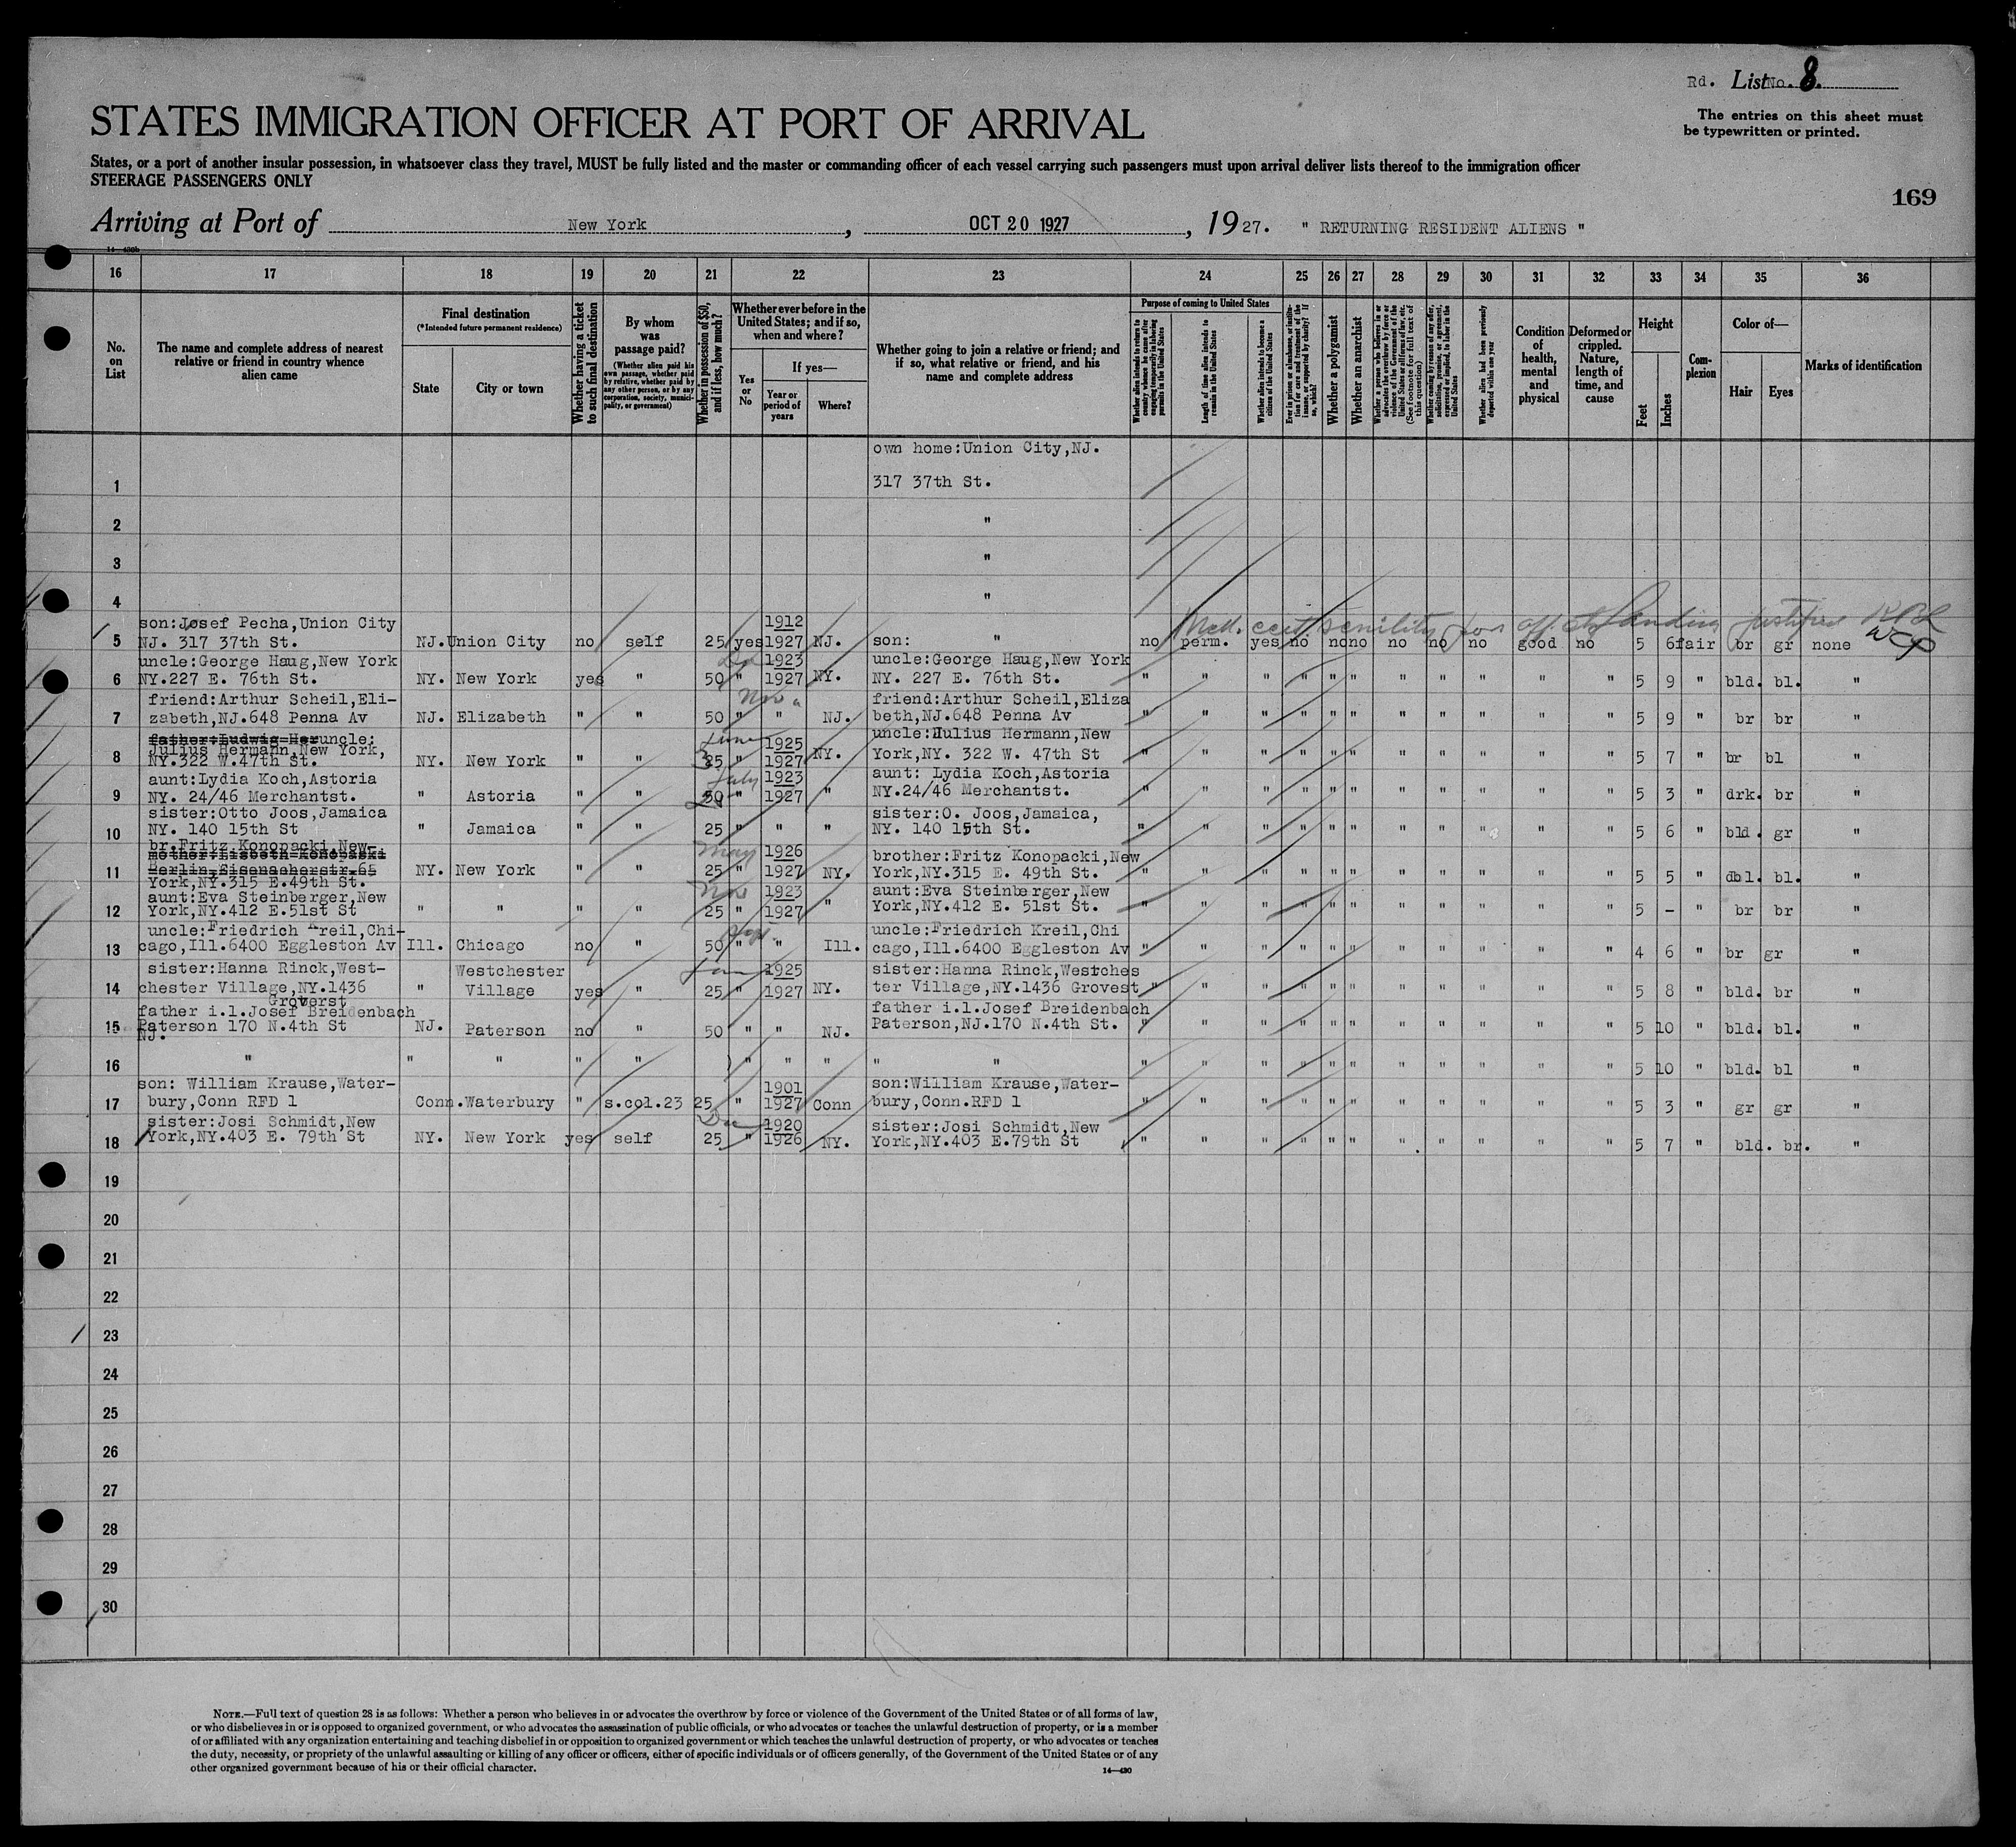 Rd. List No. 8.
The entries on this sheet must
be typewritten or printed.
STATES IMMIGRATION OFFICER AT PORT OF ARRIVAL
States, or a port of another insular possession, in whatsoever class they travel, MUST be fully listed and the master or commanding officer of each vessel carrying such passengers must upon arrival deliver lists thereof to the immigration officer
STEERAGE PASSENGERS ONLY
169
Arriving at Port of New York, OCT 20 1927, 1927. " RETURNING RESIDENT ALIENS "
14—430b
16 17 18 19 20 21 22 23 24 25 26 27 28 29 30 31 32 33 34 35 36
No.
on
List
The name and complete address of nearest
relative or friend in country whence
alien came
Final destination
(*Intended future permanent residence)
State
City or town
Whether having a ticket
to such final destination
By whom
was
passage paid?
(Whether alien paid his
own passage, whether paid
by relative, whether paid by
any other person, or by any
corporation, society, munici-
pality, or government)
Whether in possession of $50,
and if less, how much?
Whether ever before in the
United States; and if so,
when and where?
Yes
or
No
If yes—
Year or
period of
years
Where?
Whether going to join a relative or friend; and
if so, what relative or friend, and his
name and complete address
Purpose of coming to United States
Whether alien intends to return to
country whence he came after
engaging temporarily in laboring
pursuits in the United States
Length of time alien intends to
remain in the United States
Whether alien intends to become a
citizen of the United States
Ever in prison or almshouse, or institu-
tion for care and treatment of the
insane, or supported by charity? If
so, which?
Whether a polygamist
Whether an anarchist
Whether a person who believes in or
advocates the overthrow by force or
violence of the Government of the
United States or all forms of law, etc.
(See footnote for full text of
this question)
Whether coming by reason of any offer,
solicitation, promise, or agreement,
expressed or implied, to labor in the
United States
Whether alien had been previously
deported within one year
Condition
of
health,
mental
and
physical
Deformed or
crippled.
Nature,
length of
time, and
cause
Height
Feet
Inches
Com-
plexion
Color of—
Hair
Eyes
Marks of identification
own home:Union City,NJ.
1 317 37th St.
2 "
3 "
4 "
son:Josef Pecha,Union City 1912 landing
5 NJ. 317 37th St. NJ. Union City no self 25 yes 1927 NJ. son: " no perm. yes no no no no no no good no 5 6 fair br gr none
uncle:George Haug,New York 1923 uncle:George Haug,New York
6 NY.227 E. 76th St. NY. New York yes " 50 " 1927 NY. NY. 227 E. 76th St. " " " " " " " " " " " 5 9 " bld. bl. "
friend:Arthur Scheil,Eli- Nov friend:Arthur Scheil,Eliza
7 zabeth,NJ.648 Penna Av NJ. Elizabeth " " 50 " " NJ. beth,NJ.648 Penna Av " " " " " " " " " " " 5 9 " br br "
father:Ludwig Her uncle: June uncle:Hulius Hermann,New
Julius Hermann,New York, 1925
8 NY.322 W.47th St. NY. New York " " 25 " 1927 NY. York,NY. 322 W. 47th St " " " " " " " " " " " 5 7 " br bl "
aunt:Lydia Koch,Astoria July 1923 aunt: Lydia Koch,Astoria
9 NY. 24/46 Merchantst. " Astoria " " 50 " 1927 " NY.24/46 Merchantst. " " " " " " " " " " " 5 3 " drk. br "
sister:Otto Joos,Jamaica sister:O. Joos,Jamaica,
10 NY. 140 15th St " Jamaica " " 25 " " " NY. 140 15th St. " " " " " " " " " " " 5 6 " bld . gr "
br.Fritz Konopacki,New-
mother:Lisbeth Konopaski May 1926 brother:Fritz Konopacki,New
11 Berlin,Eisenacherstr.65 NY. New York " " 25 " 1927 NY. York,NY.315 E. 49th St. " " " " " " " " " " " 5 5 " dbl. bl. "
York,NY.315 E.49th St.
aunt:Eva Steinberger,New Nov 1923 aunt:Eva Steinberger,New
12 York,NY.412 E.51st St " " " " 25 " 1927 " York,NY.412 E. 51st St. " " " " " " " " " " " 5 - " br br "
uncle:Friedrich Kreil,Chi- uncle:Friedrich Kreil,Chi
13 cago,Ill.6400 Eggleston Av Ill. Chicago no " 50 " " Ill. cago,Ill.6400 Eggleston Av " " " " " " " " " " " 4 6 " br gr "
sister:Hanna Rinck,West- Westchester 1925 sister:Hanna Rinck,Westches
14 chester Village,NY.1436 " Village yes " 25 " 1927 NY. ter Village,NY.1436 Grovest " " " " " " " " " " " 5 8 " bld. br "
Groverst
father i.l.Josef Breidenbach father i.l.Josef Breidenbach
15 Paterson 170 N.4th St NJ. Paterson no " 50 " " NJ. Paterson,NJ.170 N.4th St. " " " " " " " " " " " 5 10 " bld. bl. "
NJ.
16 " " " " " " " " " " " " " " " " " " " " " 5 10 " bld. bl "
son: William Krause,Water- 1901 son:William Krause,Water-
17 bury,Conn RFD 1 Conn. Waterbury " s.col.23 25 " 1927 Conn bury,Conn.RFD 1 " " " " " " " " " " " 5 3 " gr gr "
sister:Josi Schmidt,New Dec 1920 sister:Josi Schmidt,New
18 York,NY.403 E. 79th St NY. New York yes self 25 " 1926 NY. York,NY.403 E.79th St " " " " " " " " " " " 5 7 " bld. br. "
19
20
21
22
23
24
25
26
27
28
29
30
NOTE.—Full text of question 28 is as follows: Whether a person who believes in or advocates the overthrow by force or violence of the Government of the United States or of all forms of law,
or who disbelieves in or is opposed to organized government, or who advocates the assassination of public officials, or who advocates or teaches the unlawful destruction of property, or is a member
of or affiliated with any organization entertaining and teaching disbelief in or opposition to organized government or which teaches the unlawful destruction of property, or who advocates or teaches
the duty, necessity, or propriety of the unlawful assaulting or killing of any officer or officers, either of specific individuals or of officers generally, of the Government of the United States or of any
other organized government because of his or their official character.
14—430